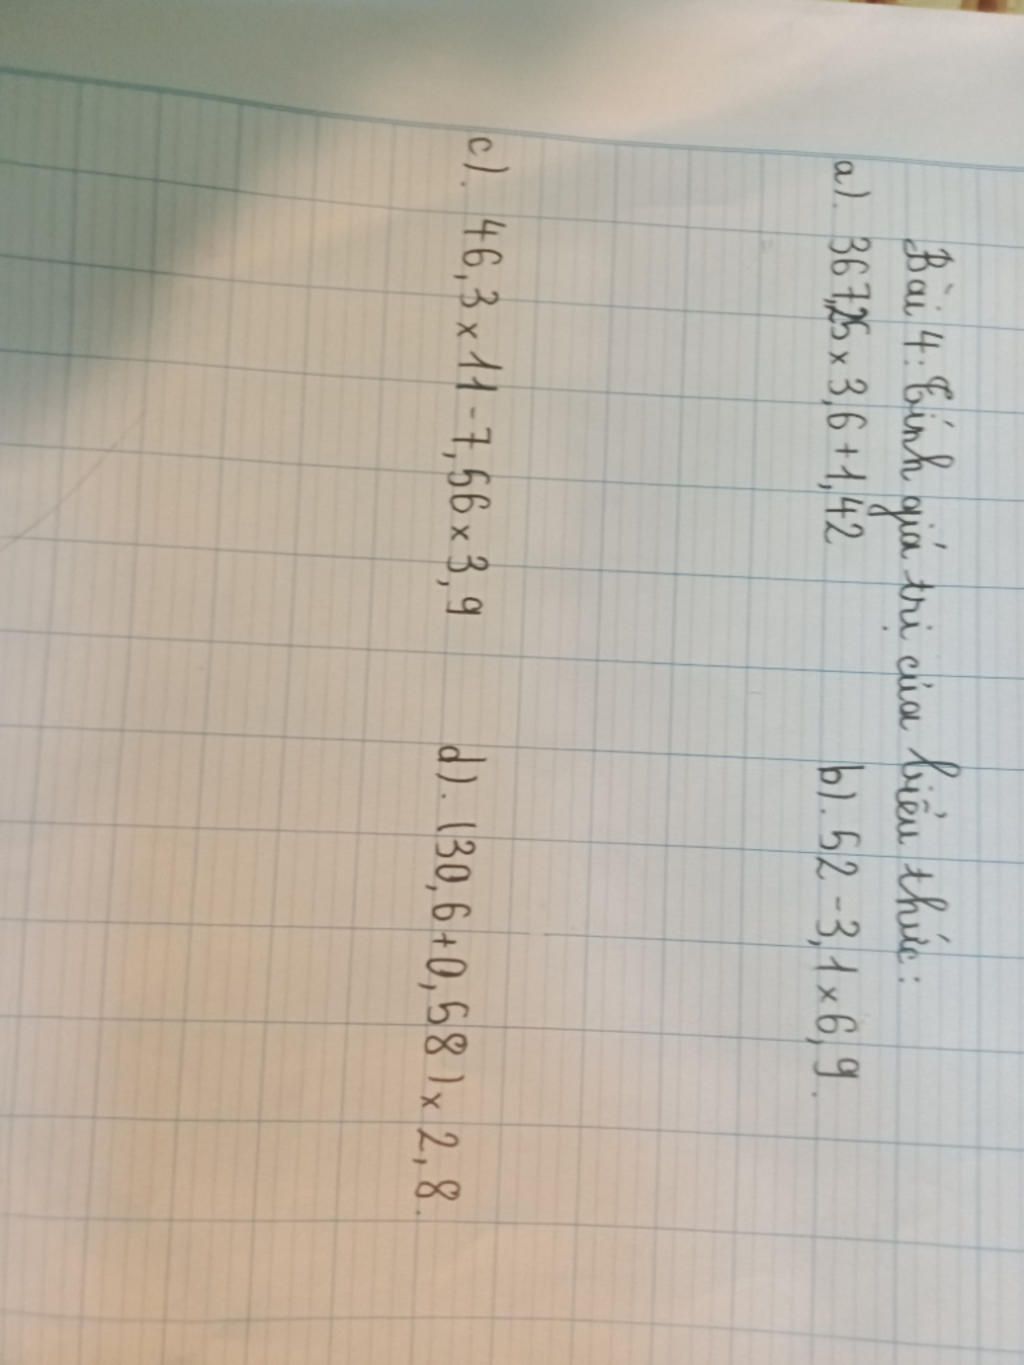 Bài 4: Tính giá trị của biểu thức:
a). 367,25 x 3,6 + 1,42 b). 52 - 3,1 x 6,9.
c). 46,3 x 11 - 7,56 x 3,9 d). (30,6 + 0,58) x 2,8.